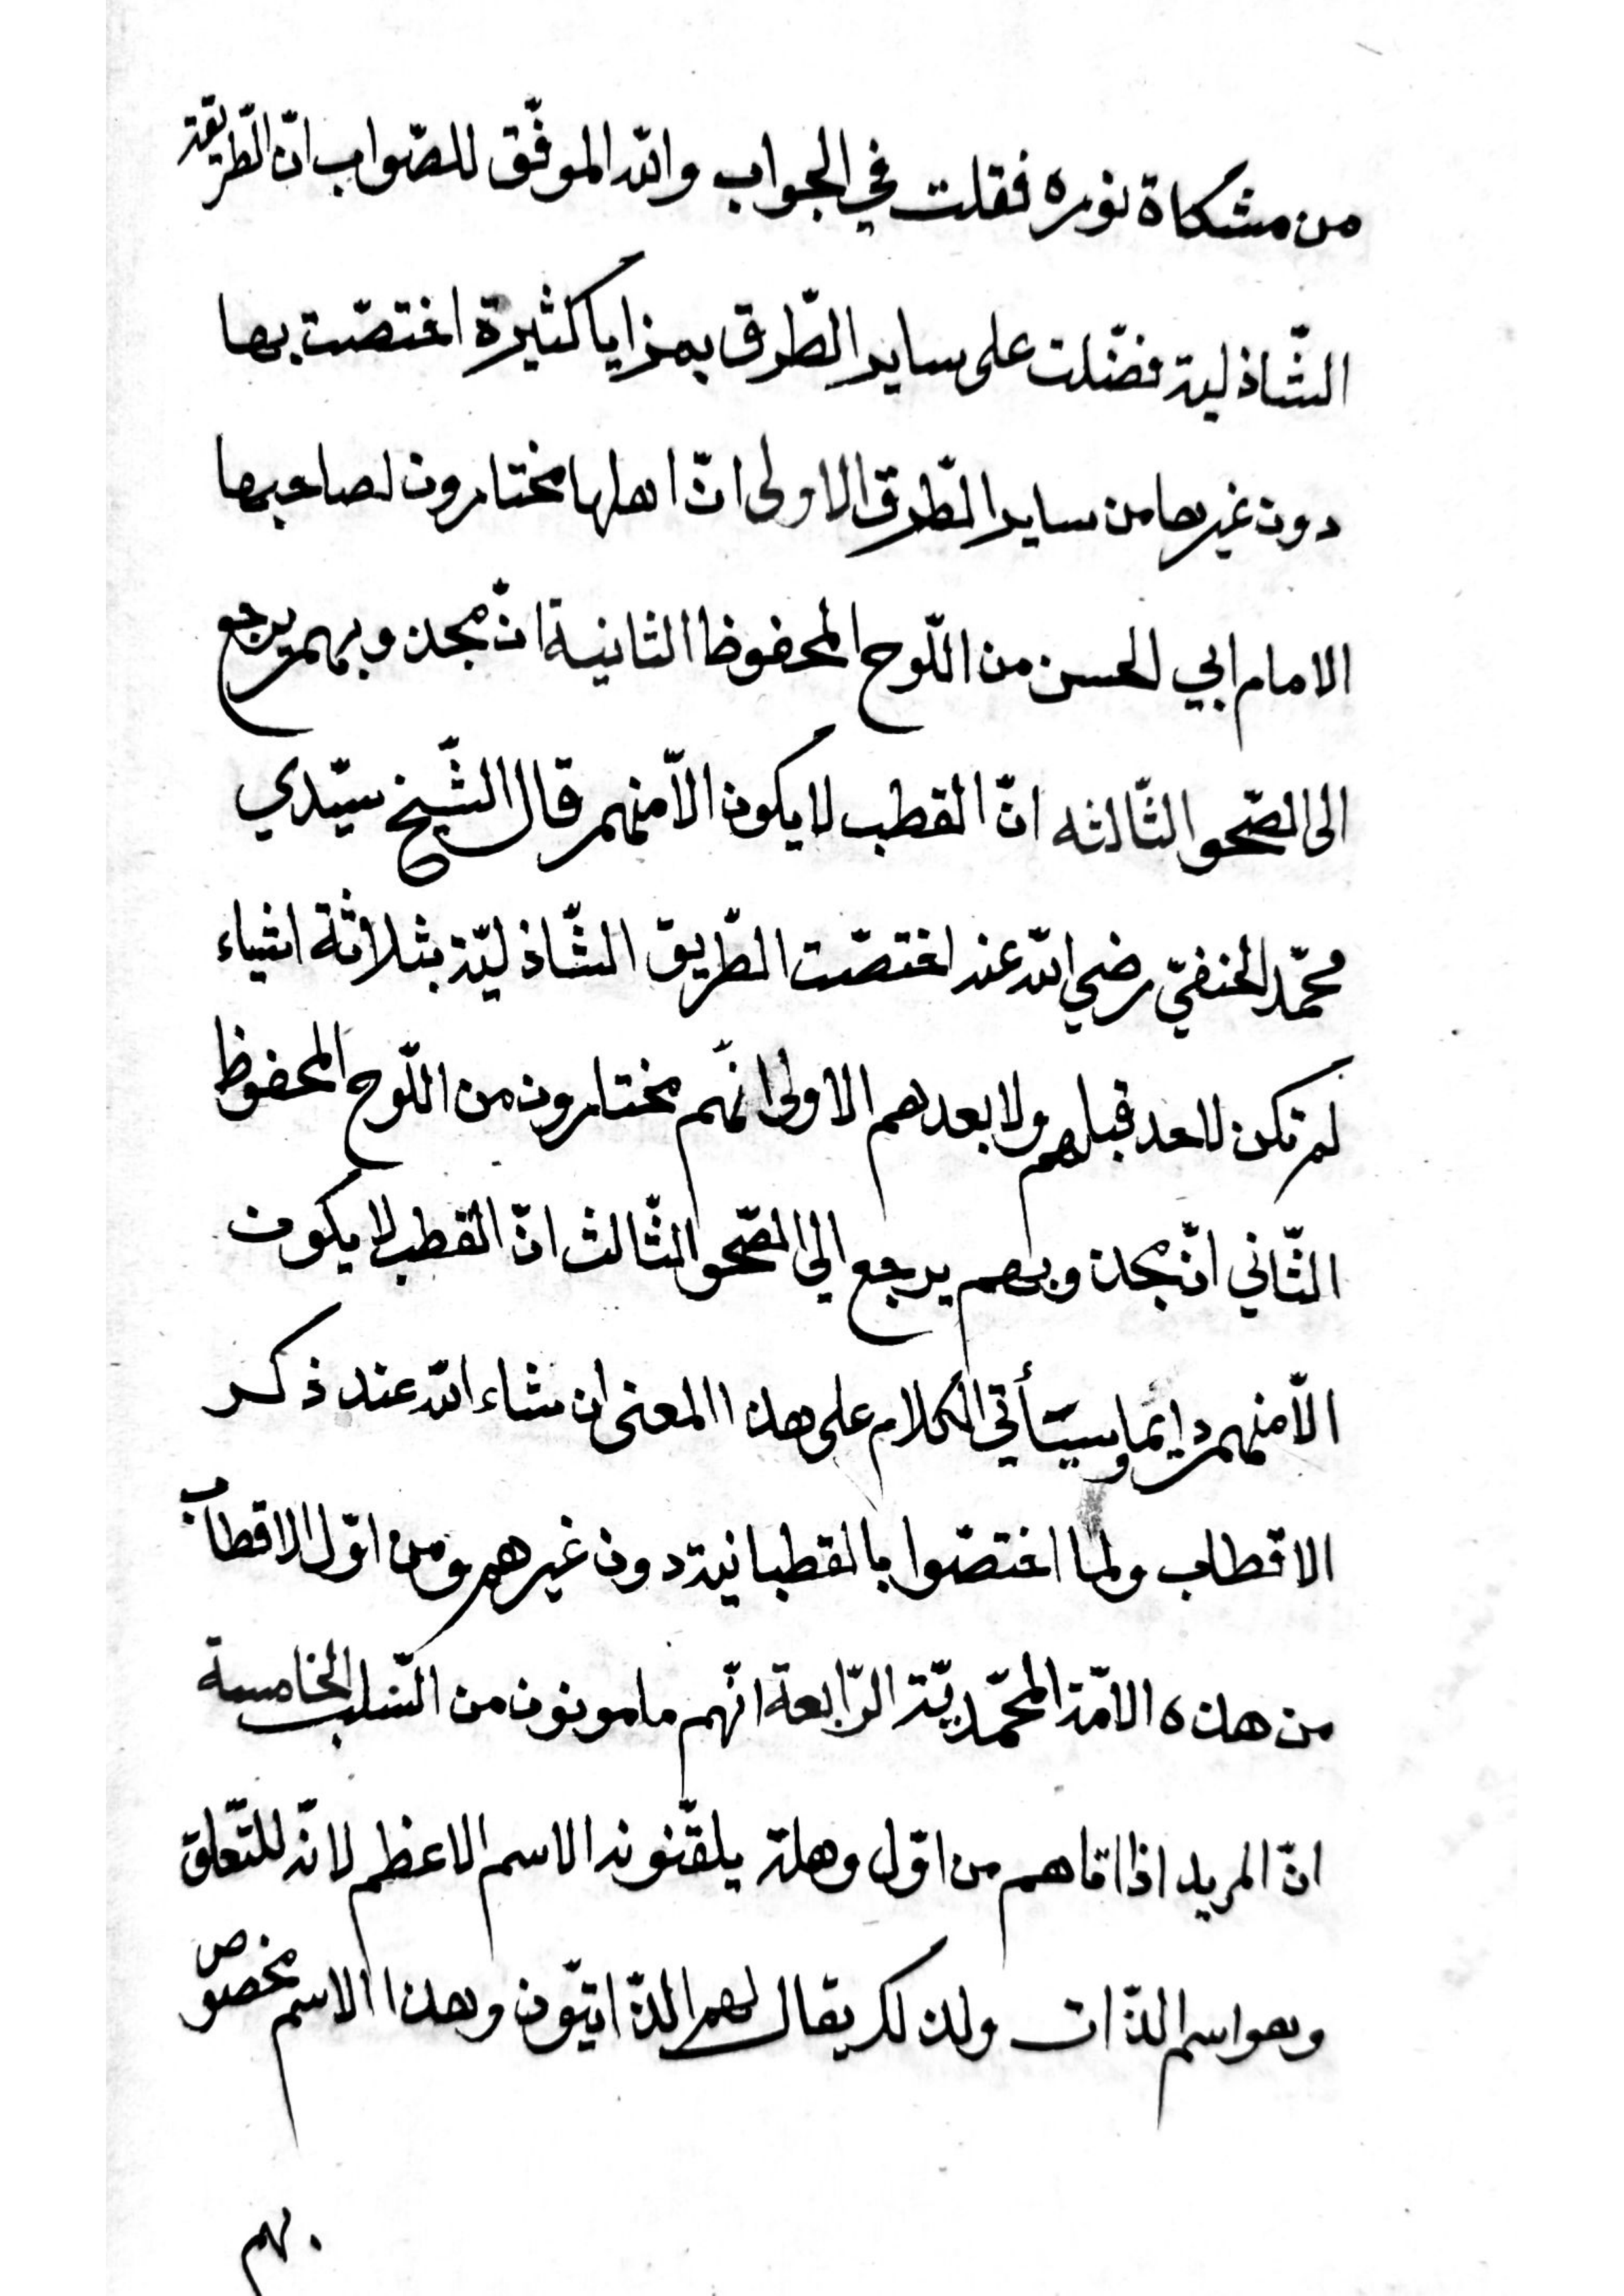 من مشكاة نوره فقلت في الجواب والله الموفّق للصّواب انّ الطّريقة
الشّاذلية فضّلت على ساير الطّرق بمزايا كثيرة اختصّت بها
دون غيرها من ساير الطّرق الاولى انّ اهلها مختارون لصاحبها
الامام ابي الحسن من اللّوح المحفوظ الثانية انّ مجذوبهم يرجع
الى الصّحو الثّالثه انّ القطب لا يكون الّا منهم قال الشّيخ سيّدي
محمّد الحنفيّ رضي الله عنه اختصّت الطّريق الشّاذليّة بثلاثة اشياء
لم تكن لاحد قبلهم ولا بعدهم الاولى انّهم مختارون من اللّوح المحفوظ
الثّاني انّ مجذوبهم يرجع الي الصّحو الثّالث انّ القطب لا يكون
الّا منهم دايما وسيأتي الكلام على هذا المعنى ان شاء الله عند ذكر
الاقطاب ولما اختصّوا بالقطبانية دون غيرهم ومن اوّل الاقطاب
من هذه الامّة المحمّديّة الرّابعة انّهم مامونون من السّلب الخامسة
انّ المريد اذا اتاهم من اوّل وهلة يلقّنونه الاسم الاعظم لانّه للتّعلق
وهو اسم الذّات ولذلك يقال لهم الذّاتيّون وهذا الاسم مخصوص
بهم